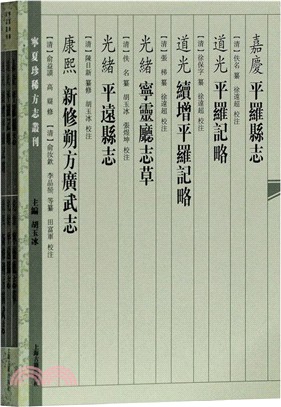 嘉慶 平羅縣志
〔清〕佚名 纂 徐遠超 校注
道光 平羅記略
〔清〕徐保字 纂 徐遠超 校注
道光 續增平羅記略
〔清〕張梯 纂 徐遠超 校注
光緒 寧靈廳志草
〔清〕佚 名 纂 胡玉冰 張煜坤 校注
光緒 平遠縣志
〔清〕陳日新 纂修 胡玉冰 校注
康熙 新修朔方廣武志
〔清〕俞益謨 高嶷 修 〔清〕俞汝欽 等纂 田富軍 校注
主編 胡玉冰
寧夏珍稀方志叢刊